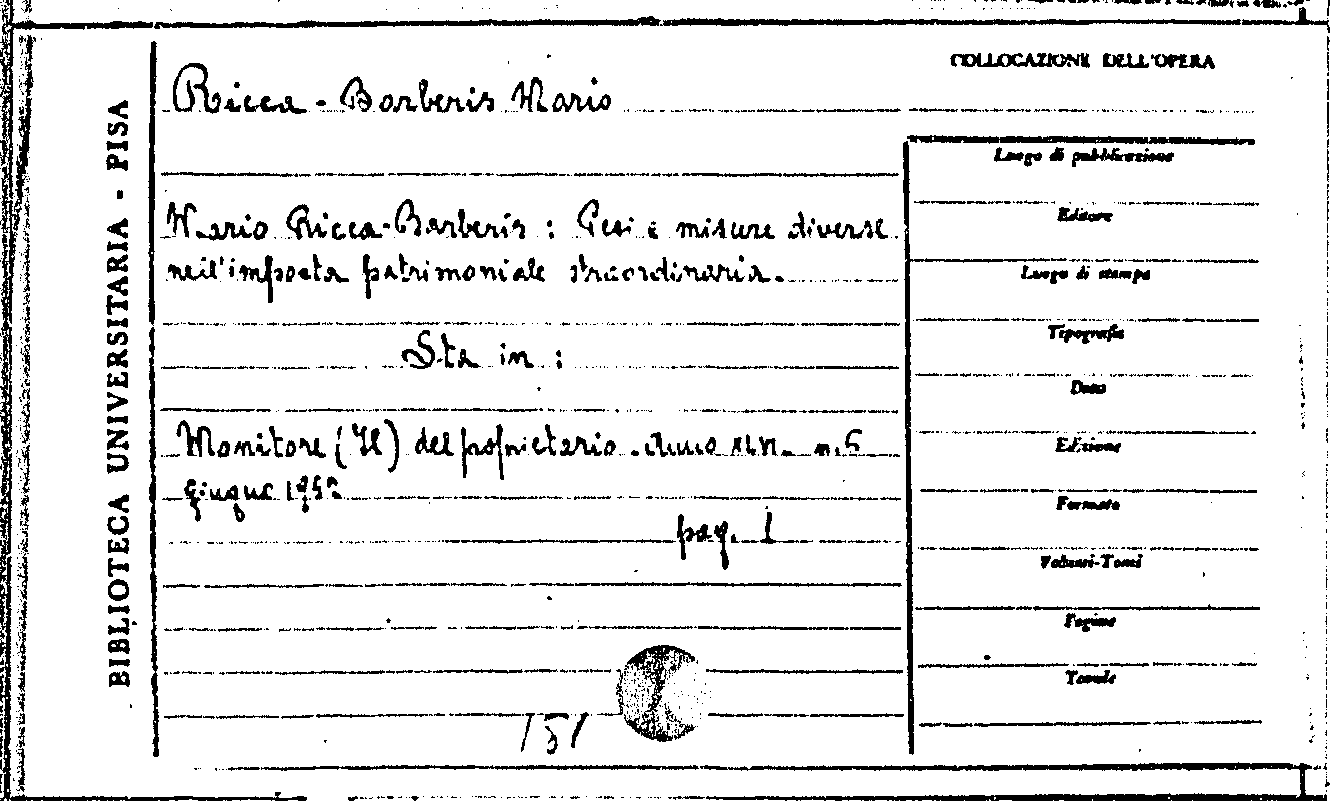 COLLOCAZIONE DELL'OPERA
BIBLIOTECA UNIVERSITARIA - PISA
Ricca - Barberis Mario
Mario Ricca-Barberis : Pesi e misure diverse
nell'imposta patrimoniale straordinaria.
Sta in :
Monitore (Il) del proprietario. Anno n. 6
giugno
pag. 1
151
Luogo di pubblicazione
Editore
Luogo di stampa
Tipografia
Data
Edizione
Formato
Volumi-Tomi
Pagine
Tavole